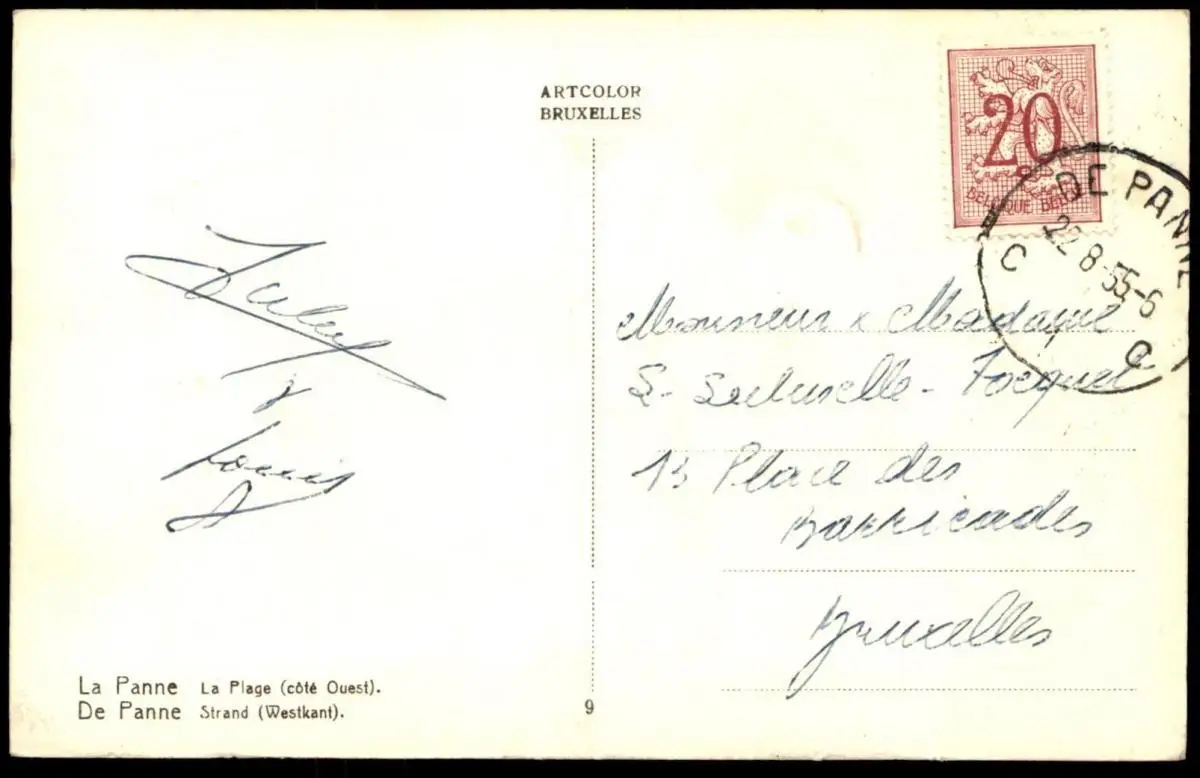 ARTCOLOR
BRUXELLES
20
BELGIQUE BELGIE
DE PANNE
22-8-55-6
C C
&
Louis
Monsieur & Madame
S- - Jocquet
13 Place des
Barricades
Bruxelles
La Panne La Plage (côté Ouest).
De Panne Strand (Westkant).
9